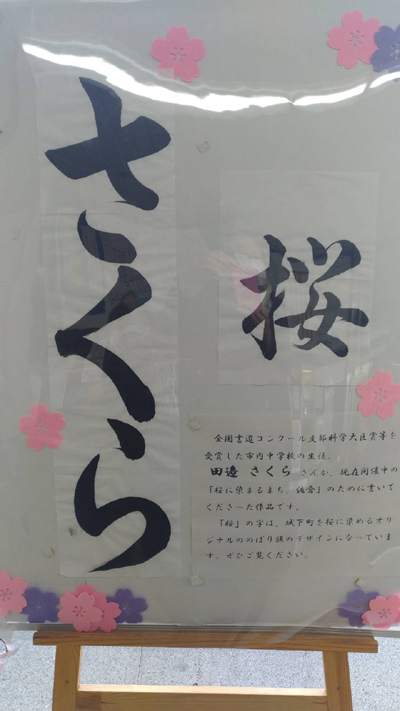 さくら
桜
全国書道コンクール文部科学大臣賞等を
受賞した市内中学校の生徒、
田邉 さくら さんが、現在開催中の
「桜に染まるまち、佐倉」のために書いて
くださった作品です。
「桜」の字は、城下町を桜に染めるオリ
ジナルのぼり旗のデザインになっていま
す。ぜひご覧ください。